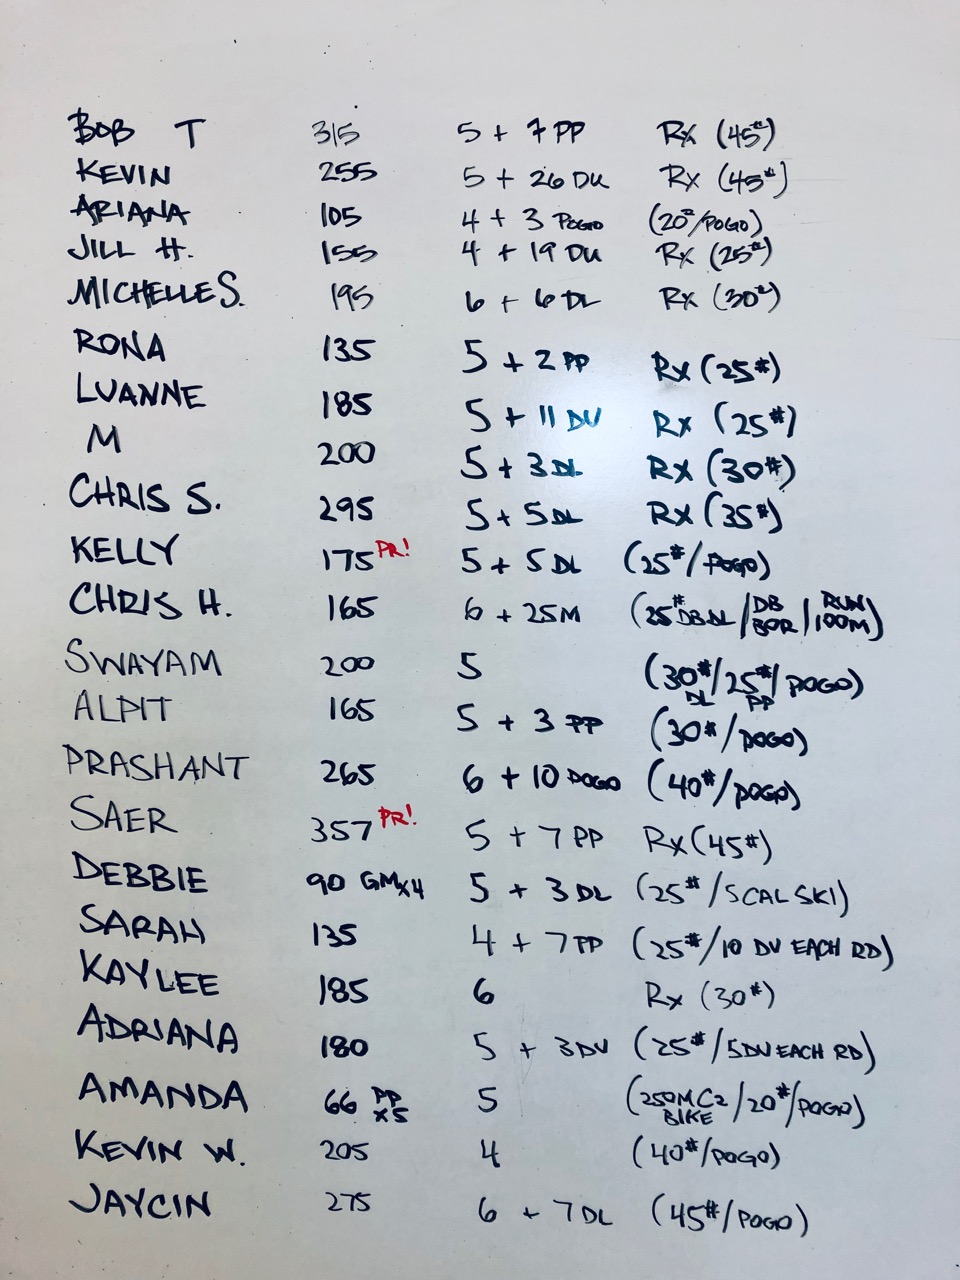 BOB T 315 5 + 7 PP Rx (45#)
KEVIN 255 5 + 26 DU Rx (45#)
ARIANA 105 4 + 3 POGO (20#/POGO)
JILL H. 155 4 + 19 DU Rx (25#)
MICHELLE S. 195 6 + 6 DL Rx (30#)
RONA 135 5 + 2 PP Rx (25#)
LUANNE 185 5 + 11 DU Rx (25#)
M 200 5 + 3 DL Rx (30#)
CHRIS S. 295 5 + 5 DL Rx (35#)
KELLY 175 PR! 5 + 5 DL (25#/POGO)
CHRIS H. 165 6 + 25M (25# DB DL/DB BOR/RUN 100M)
SWAYAM 200 5 (30# DL/25# PP/POGO)
ALPIT 165 5 + 3 PP (30#/POGO)
PRASHANT 265 6 + 10 POGO (40#/POGO)
SAER 357 PR! 5 + 7 PP Rx (45#)
DEBBIE 90 GM x4 5 + 3 DL (25#/5 CAL SKI)
SARAH 135 4 + 7 PP (25#/10 DU EACH RD)
KAYLEE 185 6 Rx (30#)
ADRIANA 180 5 + 3 DU (25#/5 DU EACH RD)
AMANDA 66 PP x5 5 (250M C2 BIKE/20#/POGO)
KEVIN W. 205 4 (40#/POGO)
JAYCIN 275 6 + 7 DL (45#/POGO)